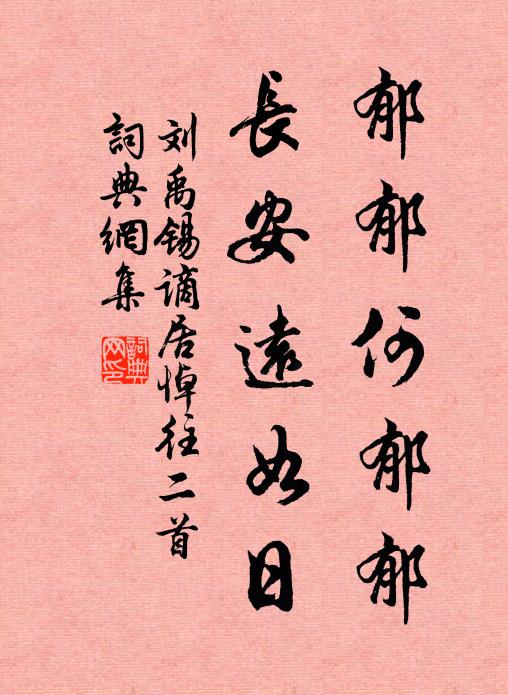 郁郁何郁郁
長安遠如日
刘禹锡谪居悼往二首
詞典網集
詞典网印